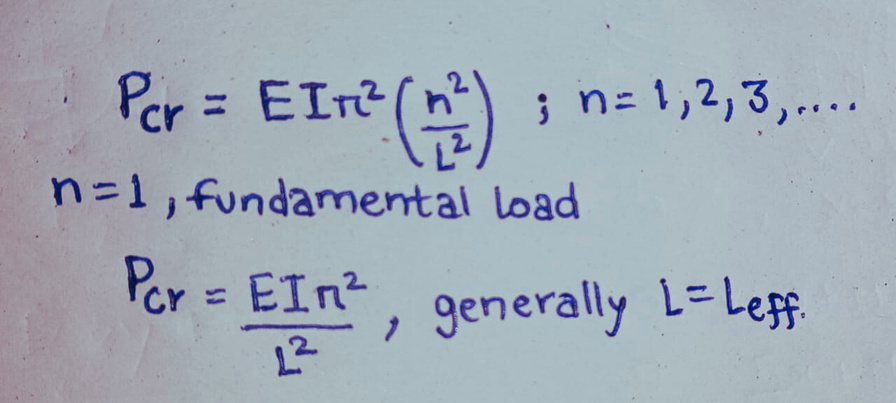 Pcr = EIπ² (n²/L²) ; n= 1,2,3,....
n=1, fundamental load
Pcr = EIπ²/L², generally L= Leff.